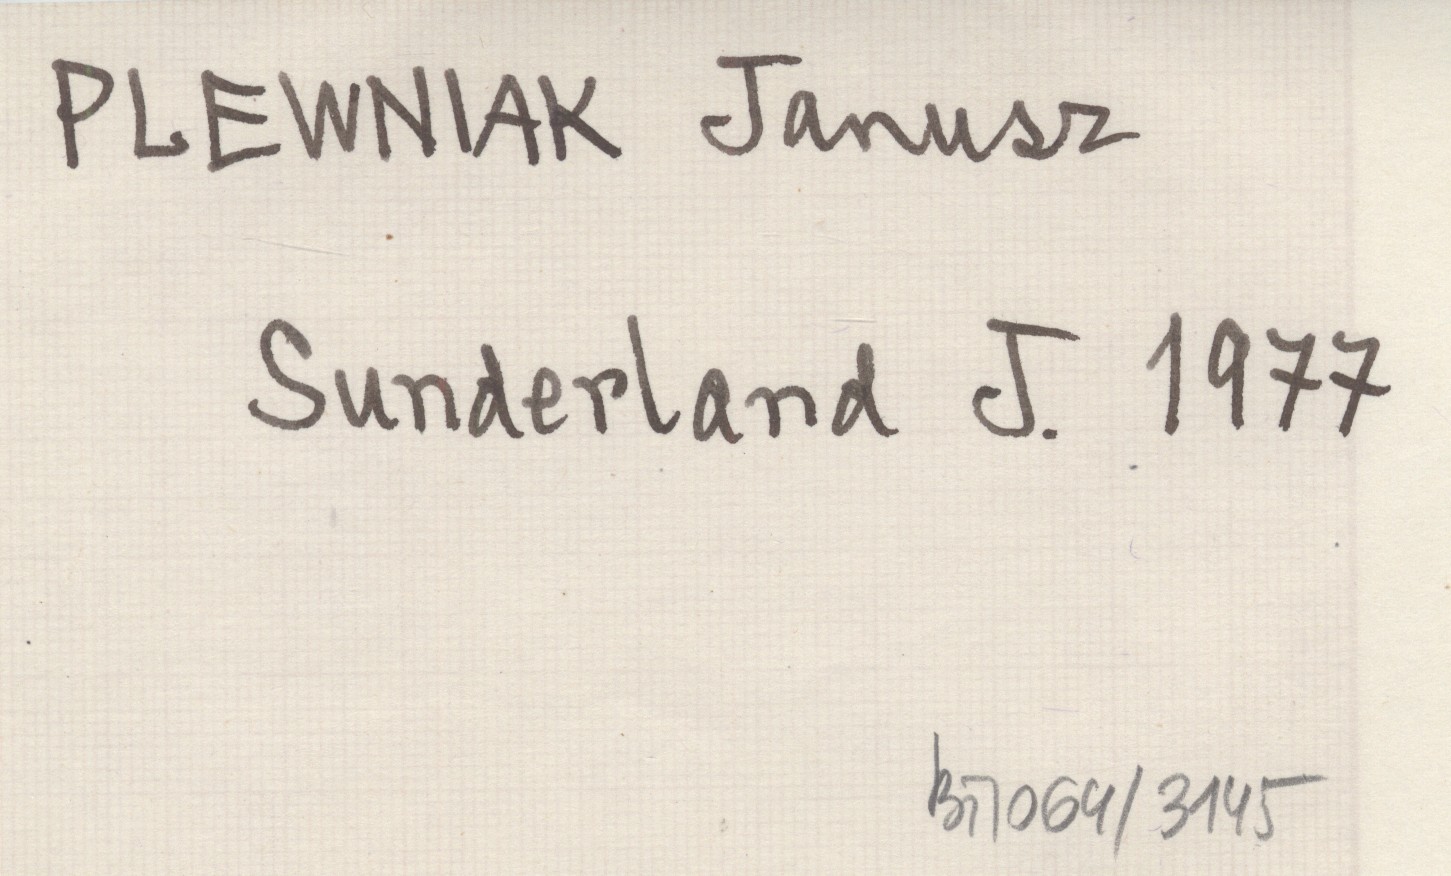 PLEWNIAK Janusz
Sunderland J. 1977
064/3145